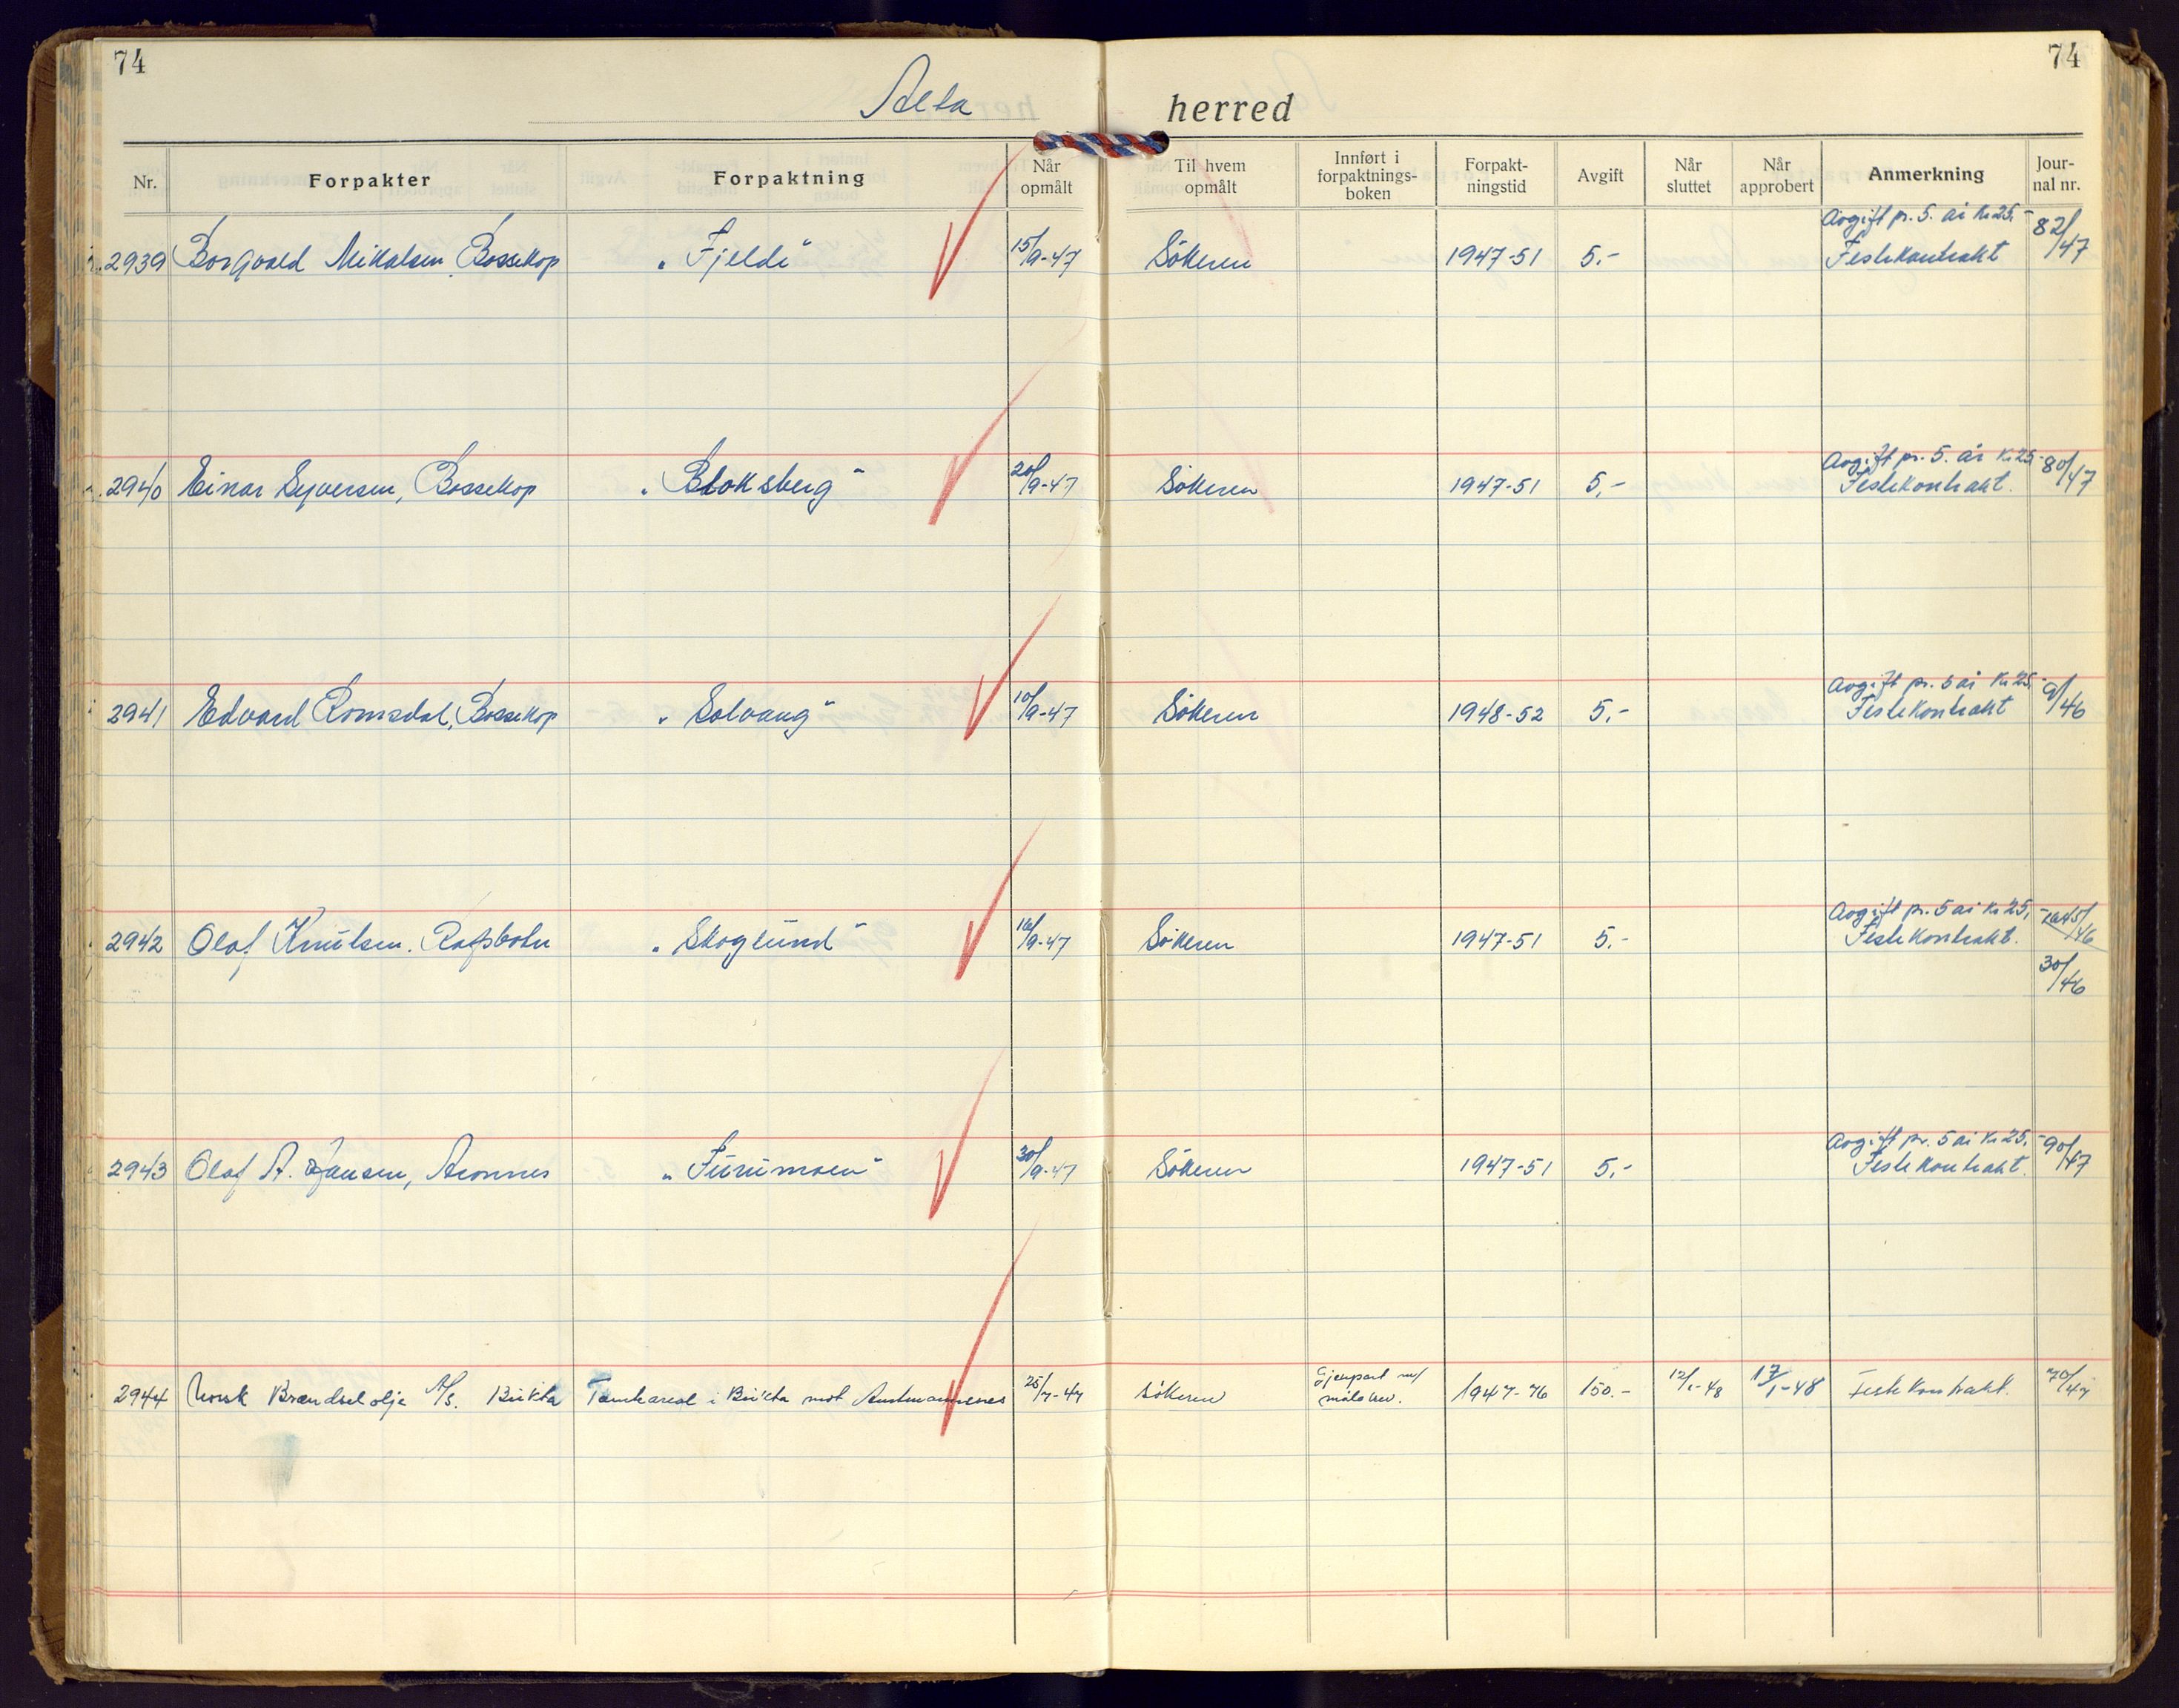 74
74
Alta herred
Nr. Forpakter Forpaktning Når opmålt Til hvem opmålt Innført i forpaktnings-boken Forpakt-ningstid Avgift Når sluttet Når approbert Anmerkning Jour-nal nr.
Avgift pr. 5. år Kr 25,-
2939 Borgvald Mikalsen, Bossekop "Fjeldi" 15/9-47 Søkeren 1947-51 5.- Festekontrakt 82/47
Avgift pr. 5. år Kr 25,-
2940 Einar Syversen, Bossekop "Bloksberg" 20/9-47 Søkeren 1947-51 5,- Festekontrakt. 80/47
Avgift pr. 5 år Kr 25,-
2941 Edvard Romsdal, Bossekop "Solvang" 10/9-47 Søkeren 1948-52 5.- Festekontrakt 9/46
Avgift pr. 5 år Kr 25,-
2942 Olaf Knutsen. Rafsbotn "Skoglund" 16/9-47 Søkeren 1947-51 5.- Festekontrakt.
30/46
Avgift pr. 5 år Kr 25,-
2943 Olaf A. Hansen, Aronnes "Furumoen" 30/9-47 Søkeren 1947-51 5,- Festekontrakt. 90/47
Gjenpart m/
2944 Norsk Brændselolje A/S. Bukta Tankareal i Bukta mot Amtmannsnes 25/7-47 Søkeren målebrev. 1947-76 150.- 12/1-48 17/1-48 Festekontrakt. 70/47